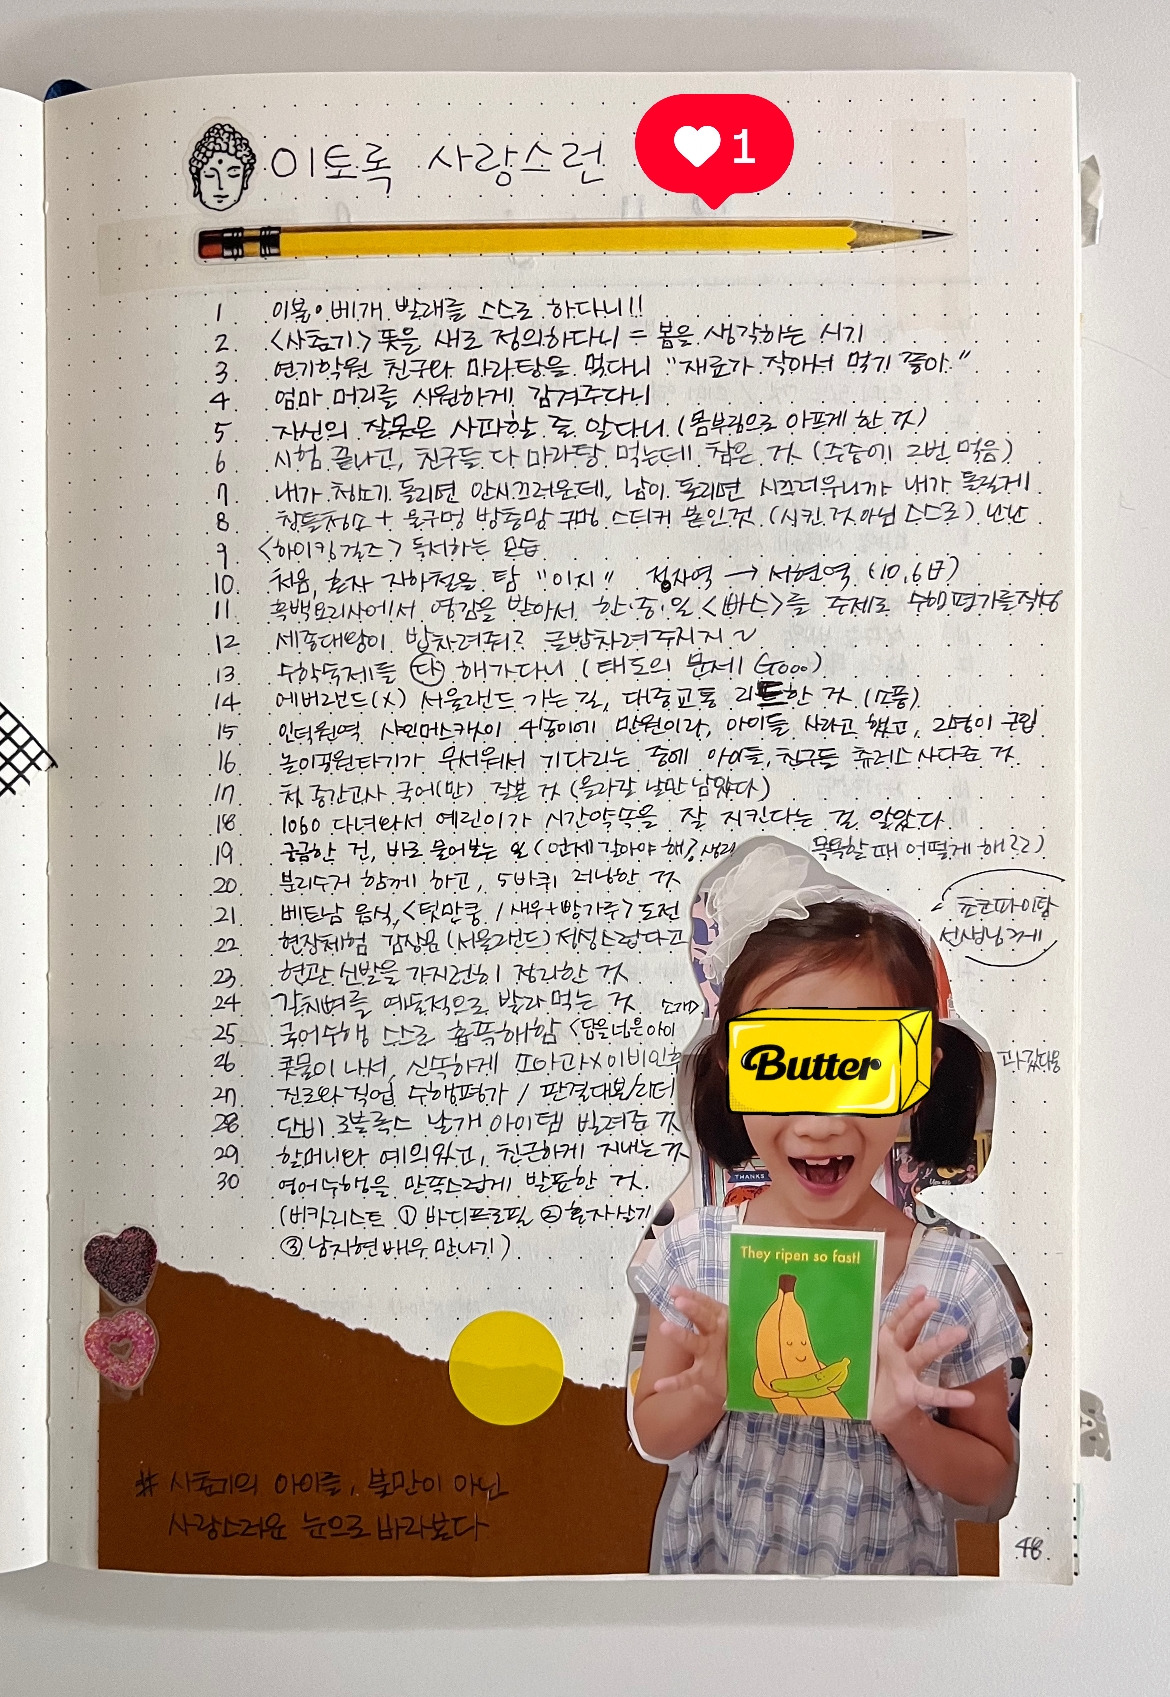 이토록 사랑스런
1
1 이불·베개 빨래를 스스로 하다니!!
2. <사춘기> 뜻을 새로 정의하다니 = 봄을 생각하는 시기
3 연기학원 친구와 마라탕을 먹다니 "재료가 작아서 먹기 좋아"
4 엄마 머리를 시원하게 감겨주다니
5 자신의 잘못은 사과할 줄 알다니 (몸부림으로 아프게 한 것)
6 시험 끝나고, 친구들 다 마라탕 먹는데 참은 것 (주중에 2번 먹음)
7 내가 청소기 돌리면 안시끄러운데, 남이 돌리면 시끄러우니까 내가 돌릴게
8 창틀청소 + 물구멍 방충망 구멍 스티커 붙인것 (시킨 것 아님 스스로) 난난
9 <하이킹걸즈> 독서하는 모습
10 처음, 혼자 지하철을 탐 "이지" 정자역 → 서현역 (10.6日)
11 흑백요리사에서 영감을 받아서 한·중·일 <빠스>를 주제로 수행평가를 작성
12 세종대왕이 밥차려줘? 글밥차려주지지~
13 수학숙제를 다 해가다니 (태도의 문제 Gooo)
14 에버랜드(X) 서울랜드 가는 길, 대중교통 리드한 것 (소풍)
15 인덕원역 샤인머스캣이 4송이에 만원이라, 아이들 사라고 했고, 2명이 구입
16 놀이공원타기가 무서워서 기다리는 중에 아이들, 친구들 츄러스 사다준 것.
17 첫 중간고사 국어(만) 잘본 것 (올라갈 날만 남았다)
18 1060 다녀와서 예린이가 시간약속을 잘 지킨다는 걸 알았다.
19 궁금한 건, 바로 물어보는 일 (언제 갈아야 해? 생리 묵묵할때 어떻게 해??)
20 분리수거 함께 하고, 5바퀴 러닝한 것
21 베트남 음식, <텃만쿵 / 새우+빵가루> 도전
22 현장체험 감상문 (서울랜드) 정성스럽다고
초코파이랑
선생님께
23 현관 신발을 가지런히 정리한 것
24 갈치뼈를 예술적으로 발라먹는 것
25 국어수행 스스로 흡족해함 <담을 넘은 아이 소개>
26 콧물이 나서, 신속하게 소아과X 이비인후과 갔다옴
27 진로와 직업 수행평가 / 판결대본/리더
28 단비 로블록스 날개 아이템 빌려준 것
29 할머니와 예의있고, 친근하게 지내는 것
30 영어수행을 만족스럽게 발표한 것.
(버카리스트 ① 바디프로필 ② 혼자살기
③ 남지현배우 만나기)
Butter
THANKS
They ripen so fast!
# 사춘기의 아이를, 불만이 아닌
사랑스러운 눈으로 바라본다
48.